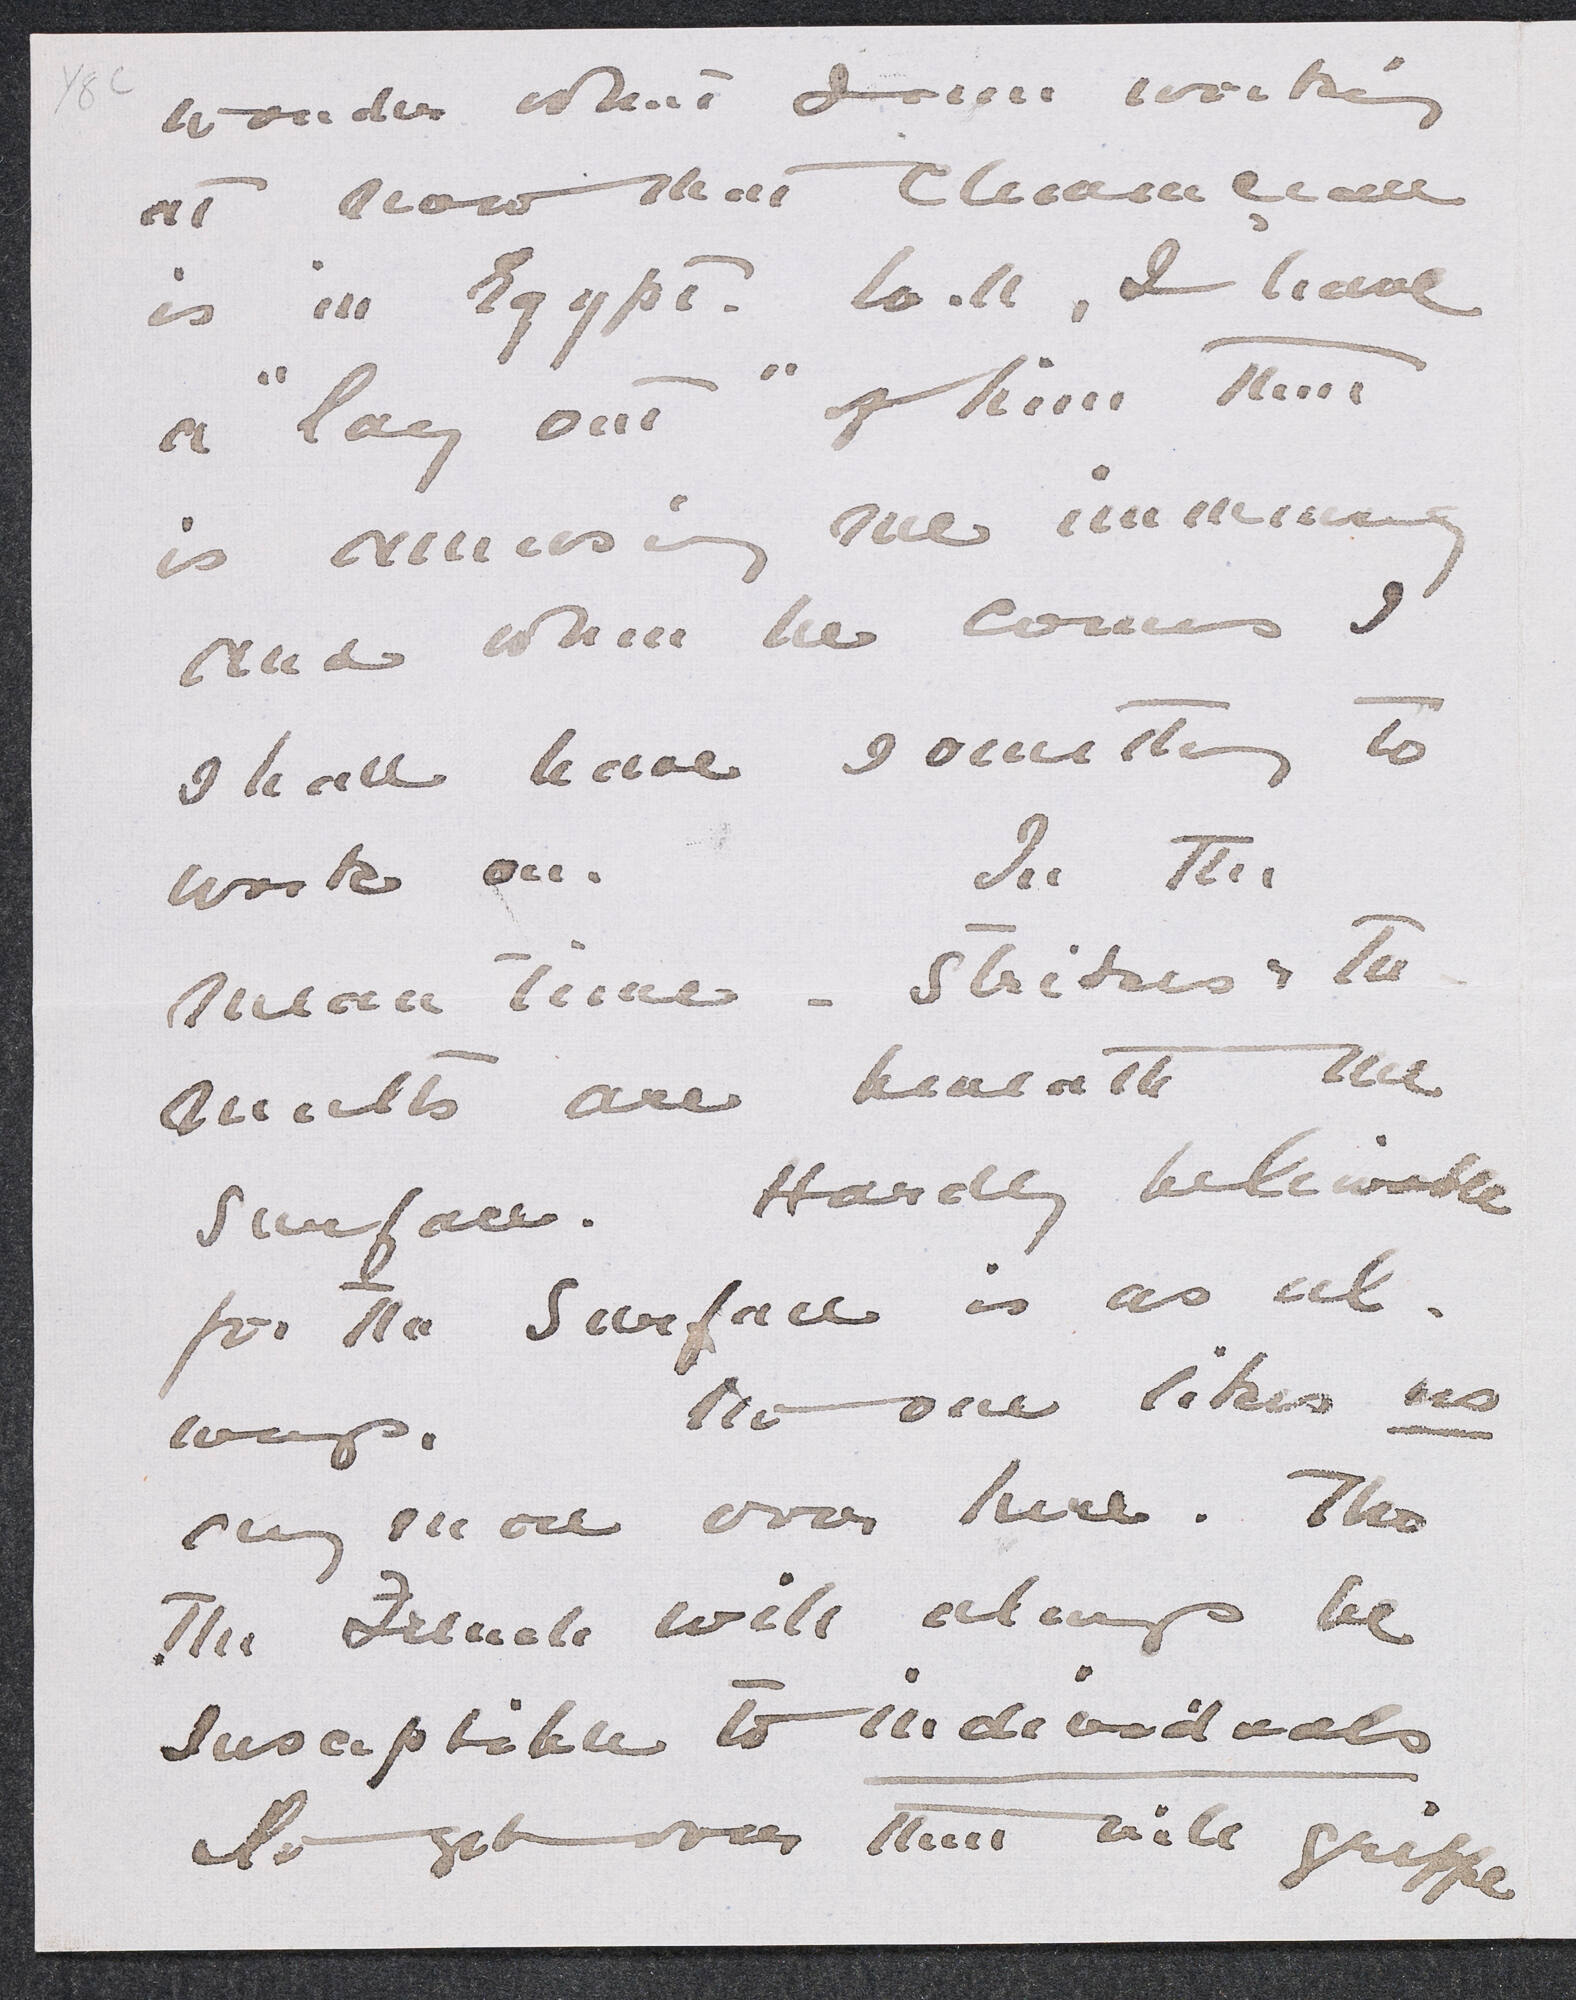 wonder what I am working
at now that Clemenceau
is in Egypt. Well, I have
a "lay out" of him that
is amusing me immensely
and when he comes I
shall have something to
work on. In the
mean time - Strikes & tu
mults are beneath the
surface. Hardly believable
for the surface is as al-
ways. No one likes us
any more over here. Tho
the French will always be
susceptible to individuals
So get over that vile grippe